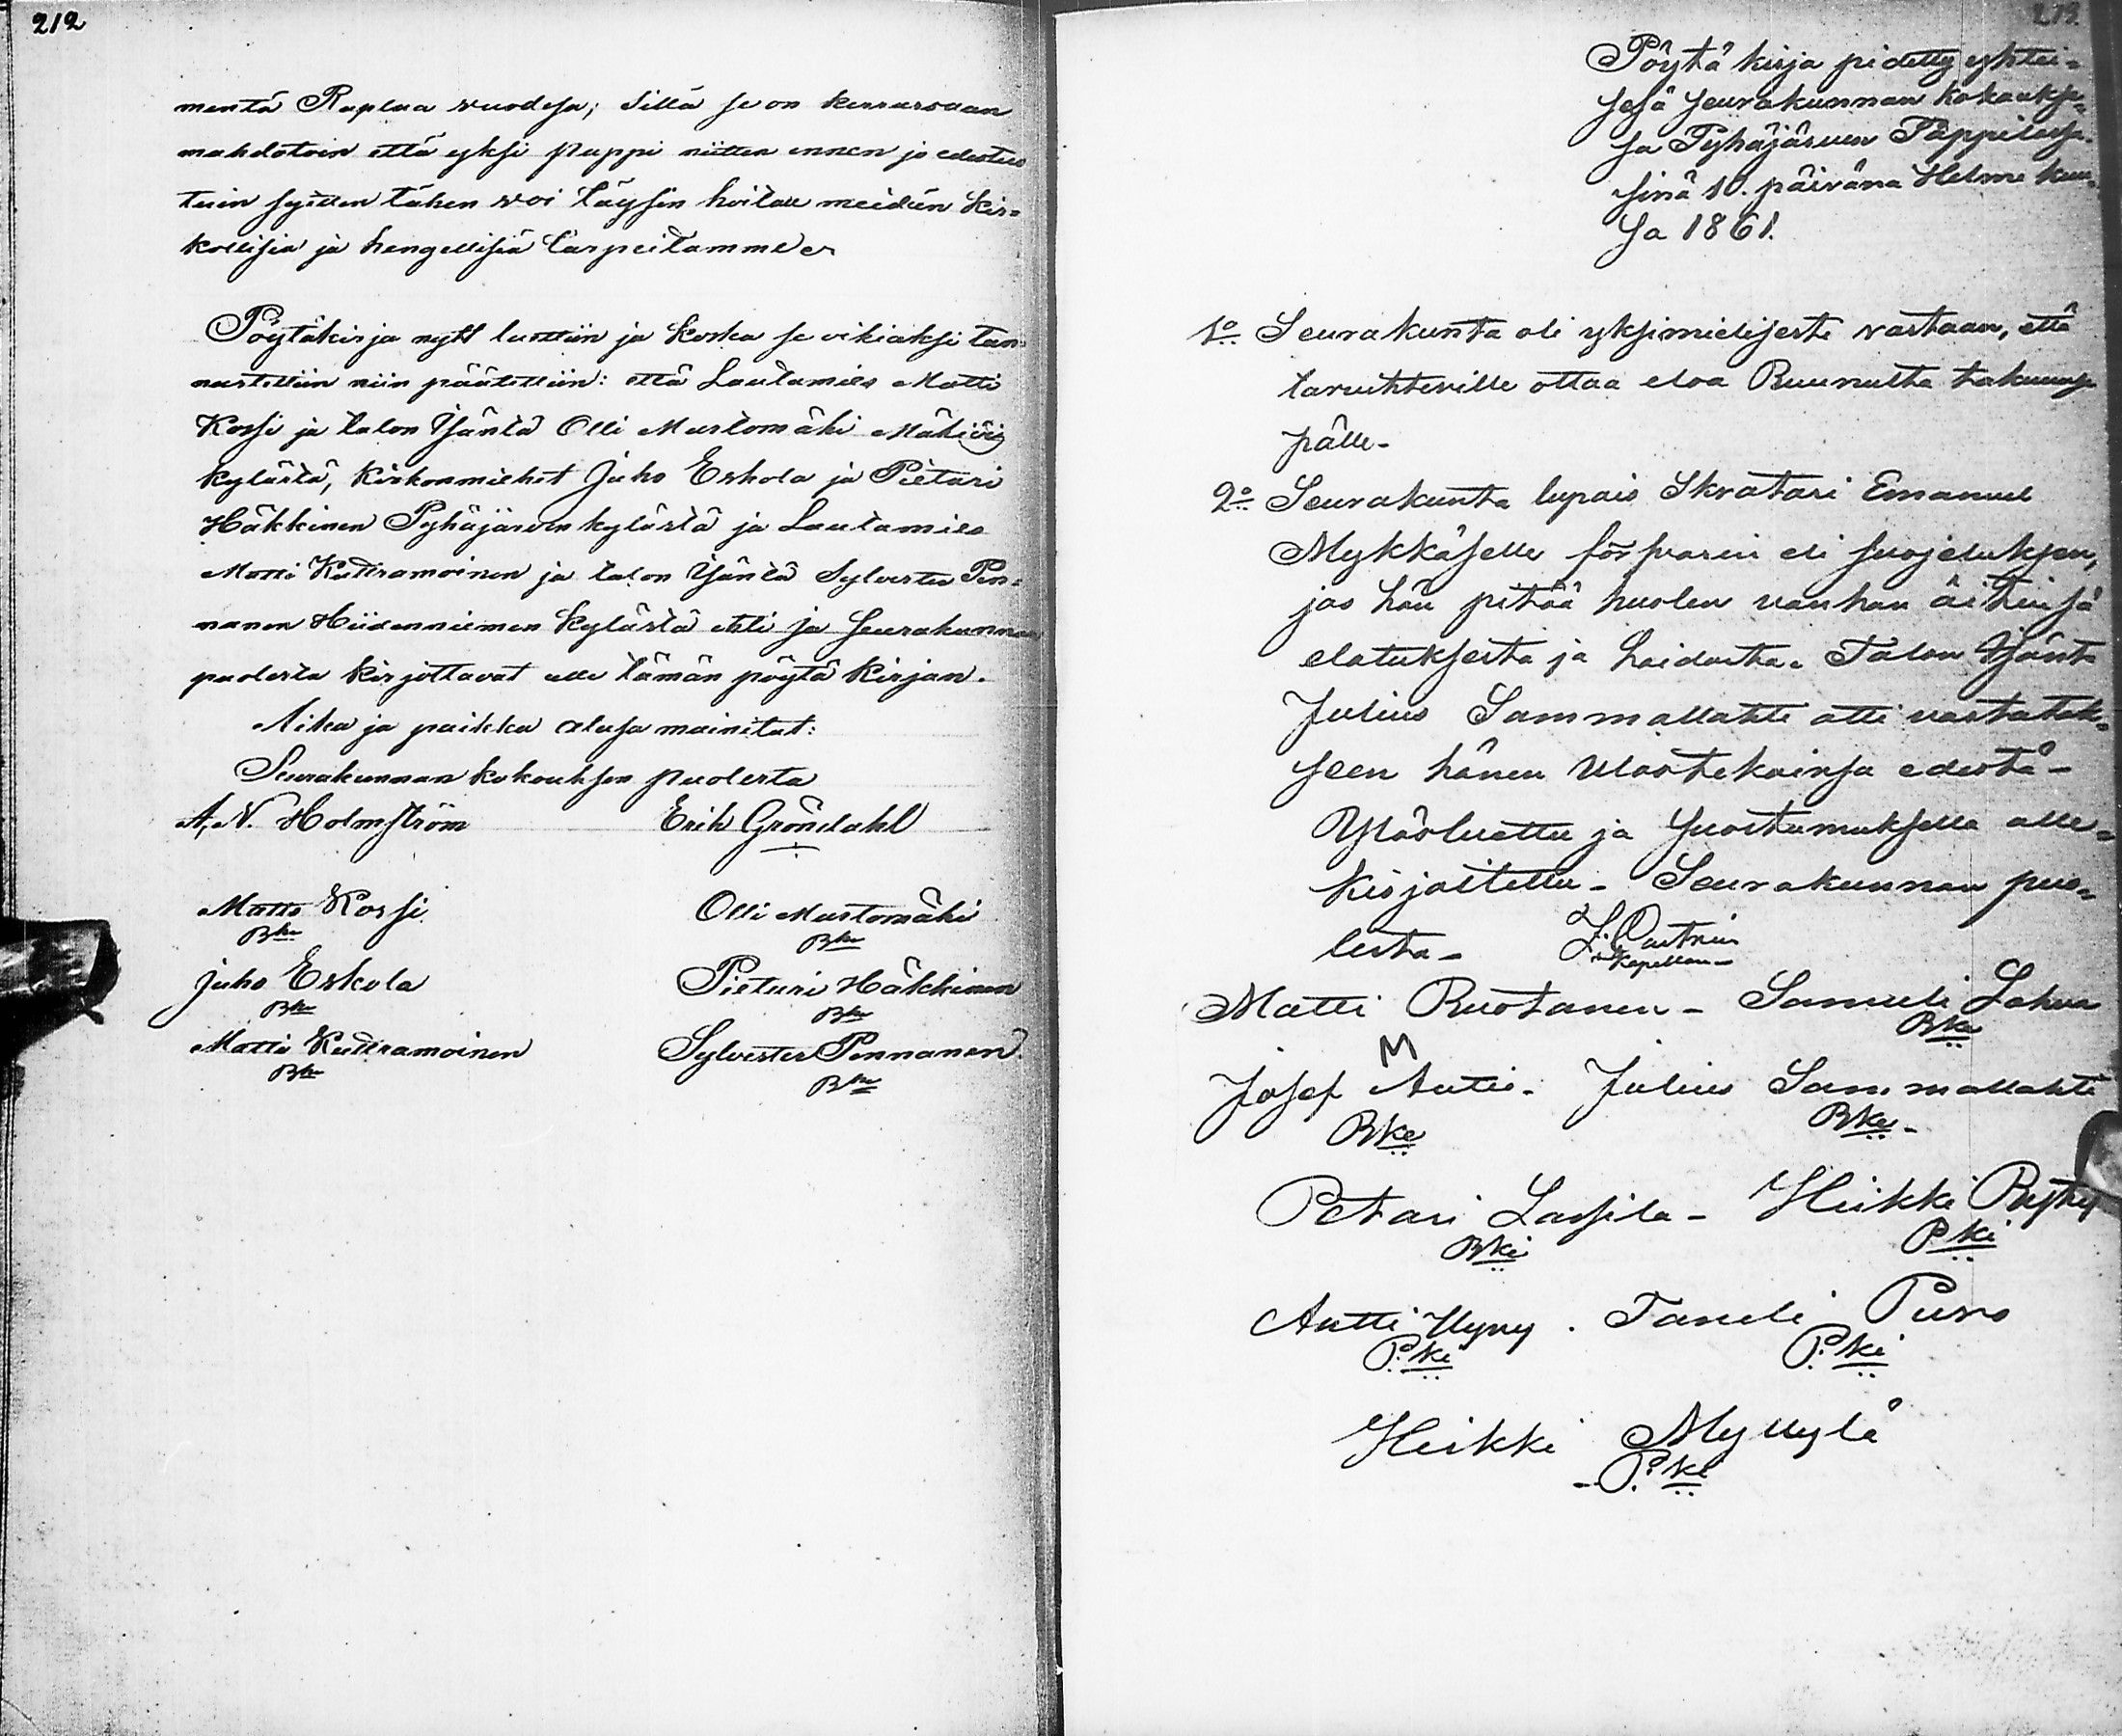 212
mentä Ruplaa vuodesa; sillä se on kerrassaan
mahdotoin että yksi pappi niitten ennen jo edestuo
tuin syitten tähen voi täysin hoitaa meidän kir=
kollisia ja hengellisiä tarpeitamme
Pöytäkirja nytt luettiin ja koska se oikiaksi tun=
nustettiin niin päätettiin: että Lautamies Matti
Kossi ja talon Isäntä Olli Mustomäki Mäki
kylästä, kirkonmiehet Juho Eskola ja Pietari
Häkkinen Pyhäjärven kylästä ja Lautamies
Matti Kuttramoinen ja talon Isäntä Sylvester Pen=
nanen Hiidenniemen kylästä ja seurakunnan
puolesta kirjottavat alle tämän pöytä kirjan.
Aika ja paikka alusa mainitut:
Seurakunnan kokouksen puolesta
A. N. Holmström Erik Gröndahl
Matti Kossi Olli Mustomäki
Bke Bke
Juho Eskola Pietari Häkkinen
Bke Bke
Matti Kuttramoinen Sylvester Pennanen
Bke Bke
Pöytä kirja pidetty yhtei=
sesä seurakunnan kokoukse=
sa Pyhäjärven Pappilassa
sinä 10. päivänä Helme kuu=
sa 1861.
1o Seurakunta oli yksimielisesti vastaan, että
tarvihteville ottaa eloa Ruunulta takuun
pälle-
2o Seurakunta lupais Skratari Emanuel
Mykkäselle försvarin eli suojeluksen,
jos hän pitää huolen vanhan äitinsä
elatuksesta ja hoidosta. Talon Isäntä
Julius Sammallahti otti vastatak=
seen hänen Ulostekoinsa edestä-
Ylösluettu ja suostumuksella alle=
kirjoitettu- Seurakunnan puo=
lesta- J. Castrén
Kapellan-
Matti Ruotanen- Samuli Lohva
Bke
M
Josef Autio- Julius Sammallahti
Bke Bke-
Petari Lassila- Heikki
Bki Pki
Antti Hyny. Taneli Puro
P. ki P. ki
Heikki Myllylä
-P. ki